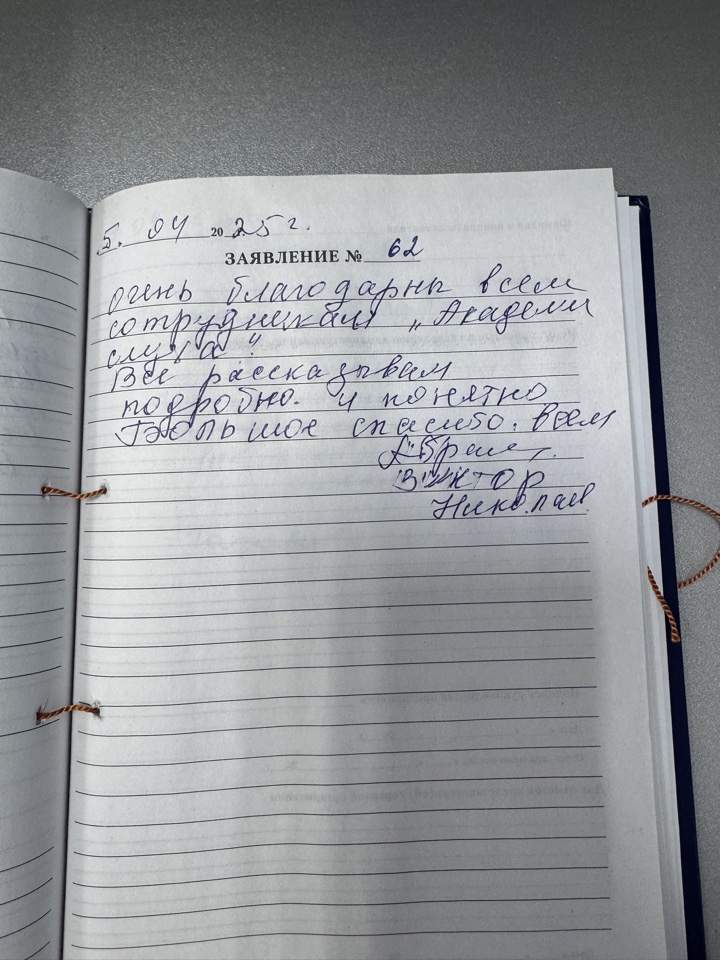 5. 04 2025 г.
ЗАЯВЛЕНИЕ № 62
очень благодарны всем
сотрудникам „Академи
слуха".
Все рассказывам
подробно. и понятно
Большое спасибо. всем
Виктор
Николаев